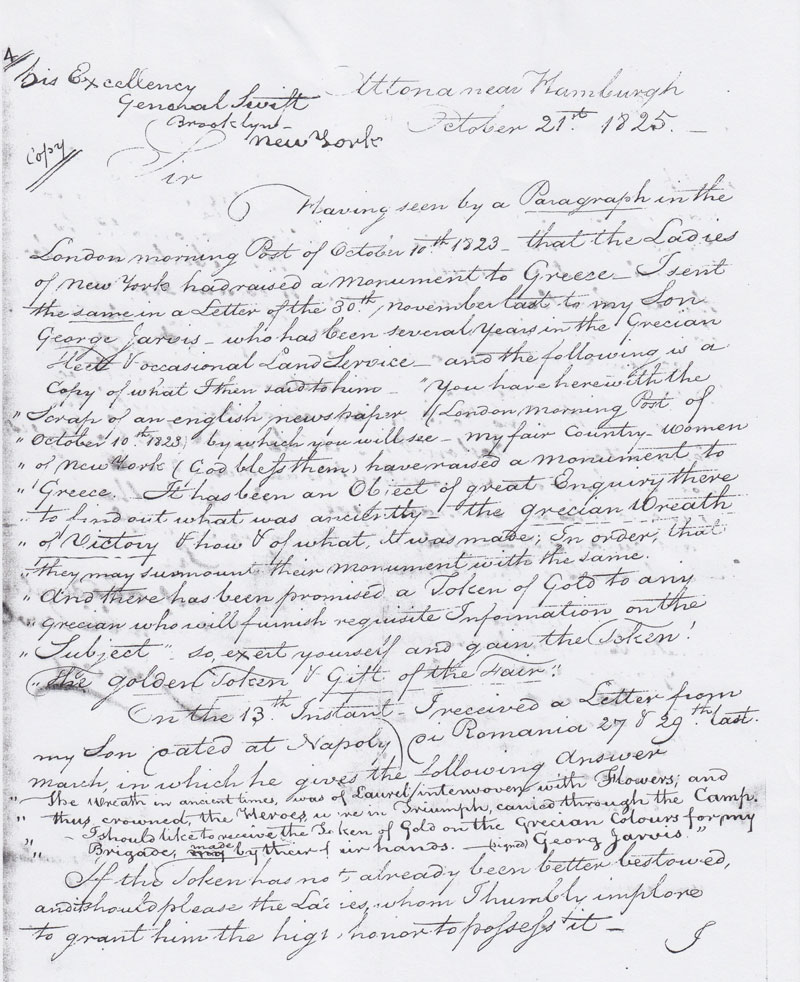 4//
His Excellency
General Swift
Brooklyn –
New York
Altona near Hamburgh
October 21st. 1825. –
Copy //
Sir
Having seen by a Paragraph in the
London morning Post of October 10th. 1823 – that the Ladies
of New York had raised a Monument to Greece – I sent
the same in a Letter of the 30th, November last to my Son
George Jarvis – who has been several years in the Grecian
Fleet & occasional Land Service – and the following is a
Copy of what I then said to him – "You have herewith the
" Scrap of an english newspaper (London morning Post of
" October 10th. 1823) by which you will see – my fair Country-women
" of New York (God bless them) have raised a monument to
" Greece. It has been an Object of great Enquiry there
" to find out what was anciently – the grecian Wreath
" of Victory & how & of what, it was made; In order, that
" they may surmount their Monument with the same.
" And there has been promised a Token of Gold to any
" grecian who will furnish requisite Information on the
" Subject" so exert yourself and gain the Token!
" the golden Token & Gift of the Fair".
On the 13th. Instant I received a Letter from
my Son dated at Napoly di Romania 27 & 29th. last.
march, in which he gives the following answer
" The Wreath in ancient times, was of Laurel interwoven with Flowers; and
" thus, crowned, the Heroes were in Triumph, carried through the Camp.
" – I should like to receive the Token of Gold on the Grecian Colours for my
" Brigade, made by their fair hands. – (signed) Georg Jarvis."
If the Token has not already been better bestowed,
and it should please the Ladies, whom I humbly implore
to grant him the high honor to possess it –
I